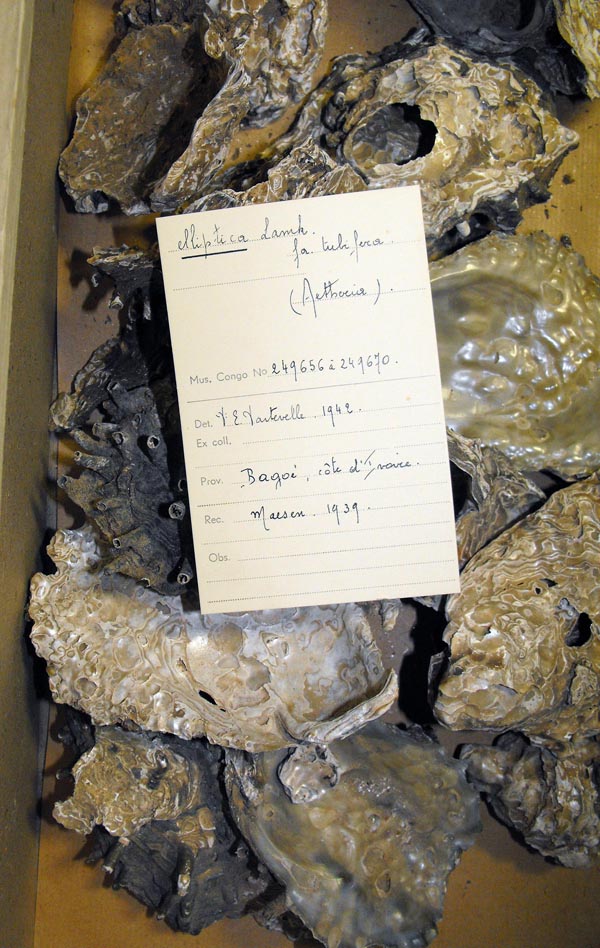 elliptica Lamk.
fa. tubifera.
(Aetheria).
Mus. Congo No 249656 à 249670.
Det. E. Dartevelle. 1942.
Ex coll.
Prov. Bagoé, côte d'Ivoire.
Rec. Maesen. 1939.
Obs.